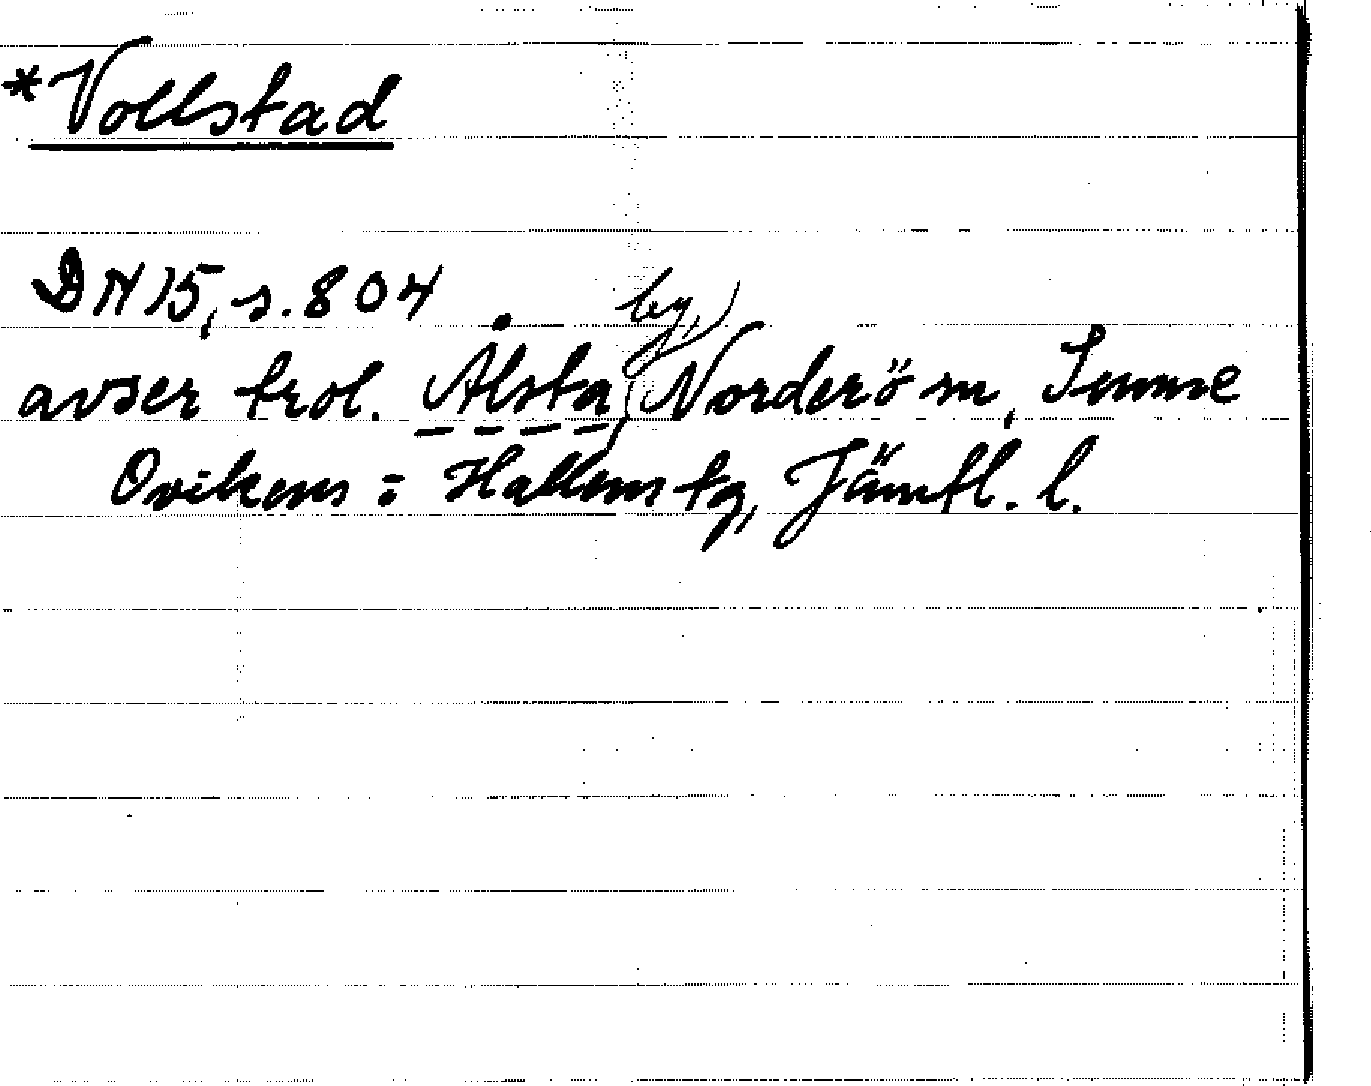 *Vollstad
DN 15, s. 804.
avser trol. Ålsta by, Norderö sn, Sunne
Ovikens o Hallens tg, Jämtl. l.